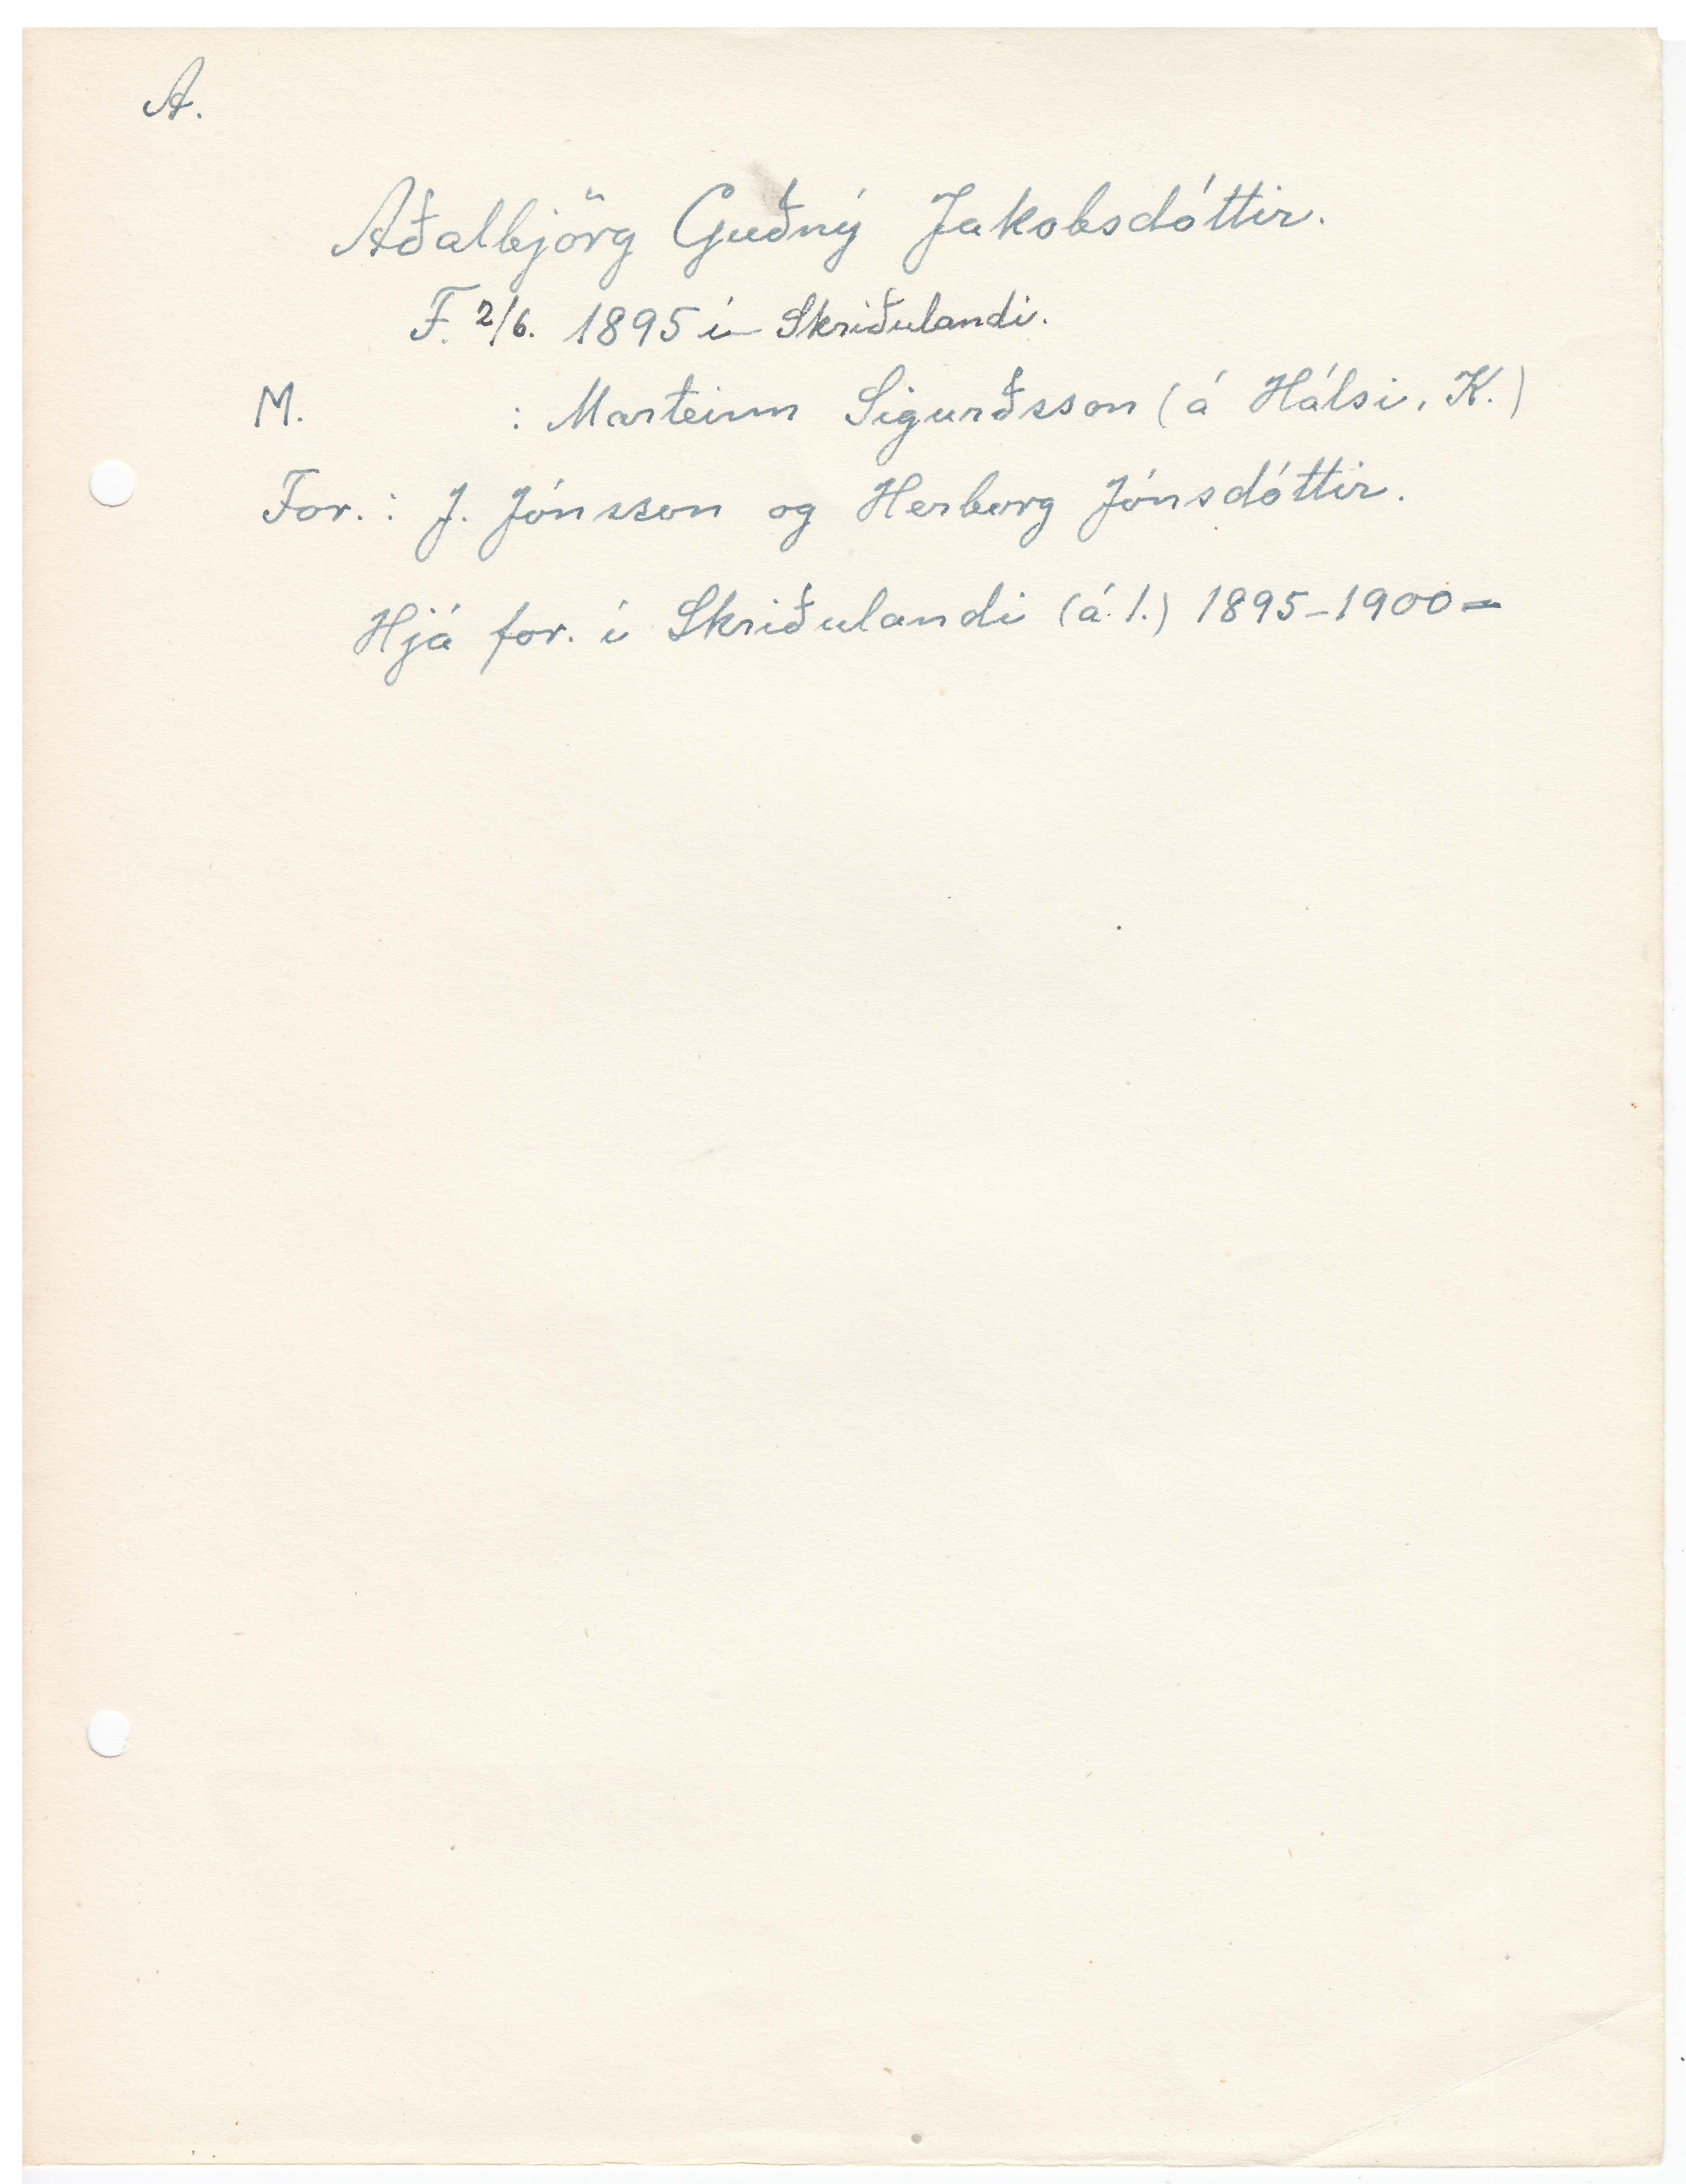 A.
Aðalbjörg Guðný Jakobsdóttir.
F. 2/6. 1895 í Skriðulandi.
M. : Marteinn Sigurðsson (á Hálsi, K.)
For. : J. Jónsson og Herborg Jónsdóttir.
Hjá for. í Skriðulandi (á 1.) 1895-1900-